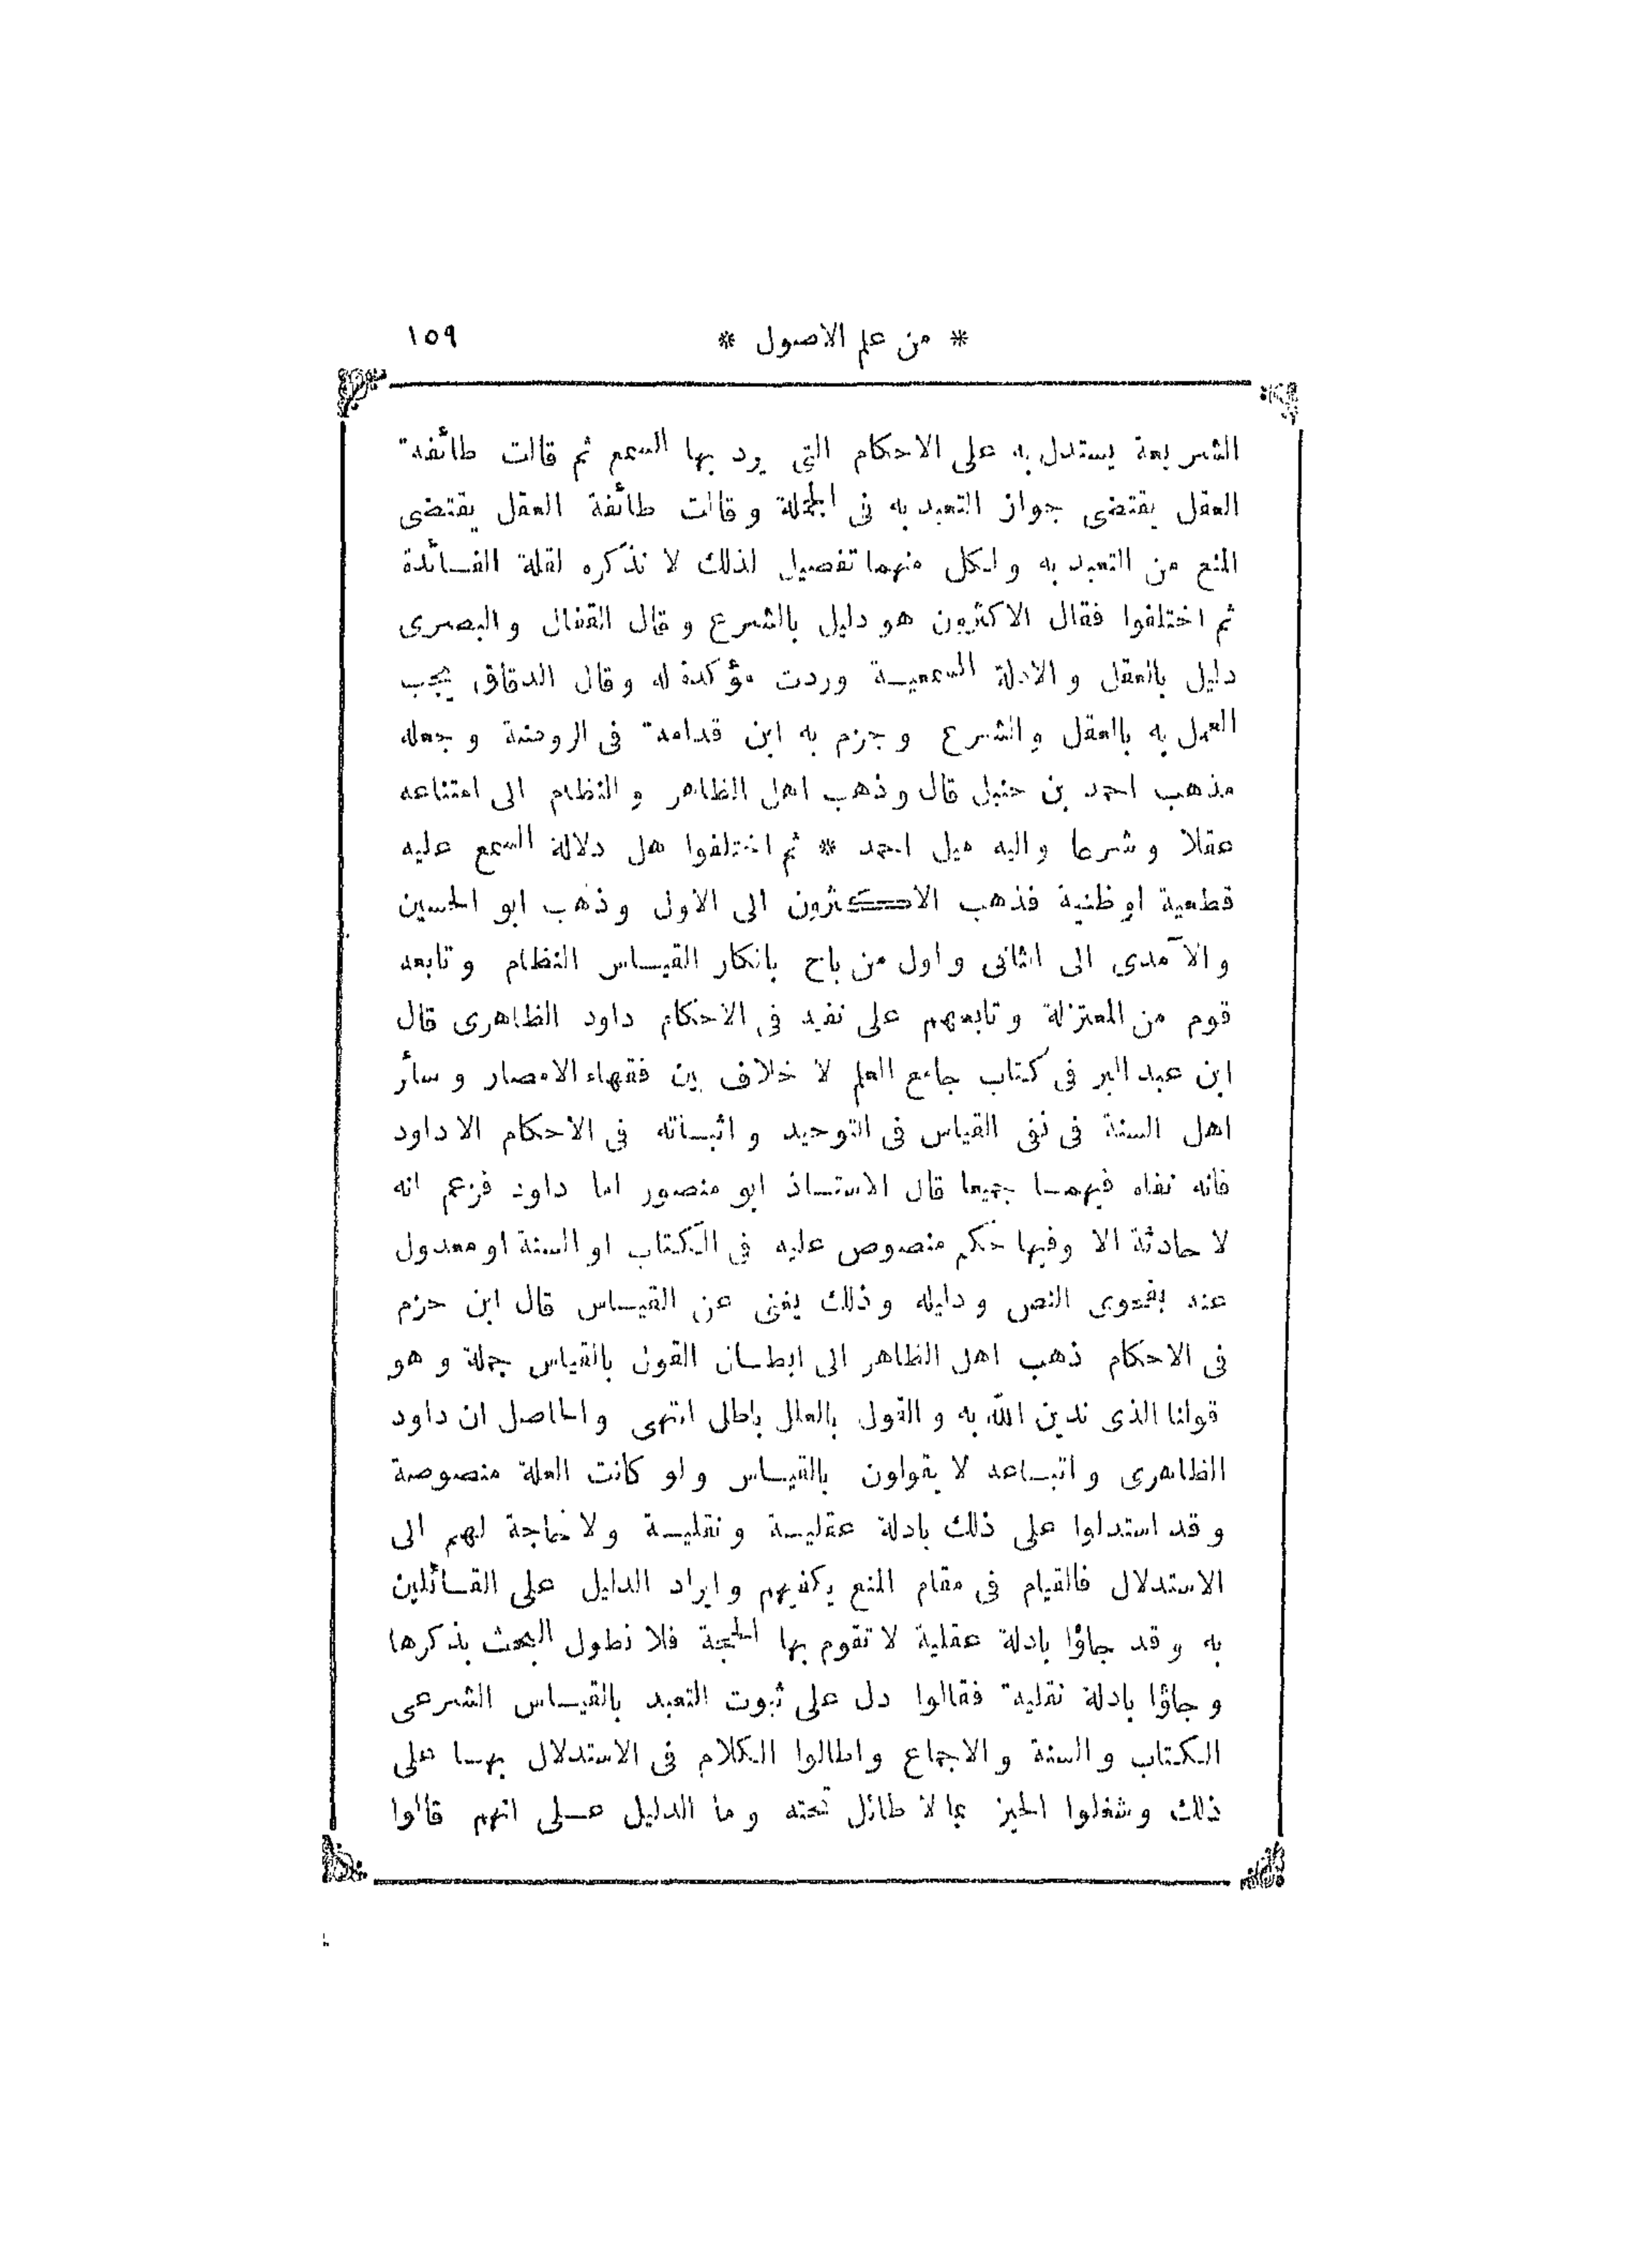 * من علم الاصول * ١٥٩
الشريعة يستدل به على الاحكام التى يرد بها السمع ثم قالت طائفة
العقل يقتضى جواز التعبد به فى الجملة وقالت طائفة العقل يقتضى
المنع من التعبد به ولكل منهما تفصيل لذلك لا نذكره لقلة الفائدة
ثم اختلفوا فقال الاكثرون هو دليل بالشرع وقال القفال والبصرى
دليل بالعقل والادلة السمعية وردت مؤكدة له وقال الدقاق يجب
العمل به بالعقل والشرع وجزم به ابن قدامة فى الروضة وجعله
مذهب احمد بن حنبل قال وذهب اهل الظاهر والنظام الى امتناعه
عقلا وشرعا واليه ميل احمد * ثم اختلفوا هل دلالة السمع عليه
قطعية او ظنية فذهب الاكثرون الى الاول وذهب ابو الحسين
والآمدى الى الثانى واول من باح بانكار القياس النظام وتابعه
قوم من المعتزلة وتابعهم على نفيه فى الاحكام داود الظاهرى قال
ابن عبد البر فى كتاب جامع العلم لا خلاف بين فقهاء الامصار وسائر
اهل السنة فى نفى القياس فى التوحيد واثباته فى الاحكام الا داود
فانه نفاه فيهما جميعا قال الاستاذ ابو منصور اما داود فزعم انه
لا حادثة الا وفيها حكم منصوص عليه فى الكتاب او السنة او معدول
عنه بفحوى النص ودليله وذلك يغنى عن القياس قال ابن حزم
فى الاحكام ذهب اهل الظاهر الى ابطال القول بالقياس جملة وهو
قولنا الذى ندين الله به والقول بالعلل باطل انتهى والحاصل ان داود
الظاهرى واتباعه لا يقولون بالقياس ولو كانت العلة منصوصة
وقد استدلوا على ذلك بادلة عقلية ونقلية ولا حاجة لهم الى
الاستدلال فالقيام فى مقام المنع يكفيهم وايراد الدليل على القائلين
به وقد جاؤا بادلة عقلية لا تقوم بها الحجة فلا نطول البحث بذكرها
وجاؤا بادلة نقلية فقالوا دل على ثبوت التعبد بالقياس الشرعى
الكتاب والسنة والاجماع واطالوا الكلام فى الاستدلال بها على
ذلك وشغلوا الحيز بما لا طائل تحته وما الدليل على انهم قالوا